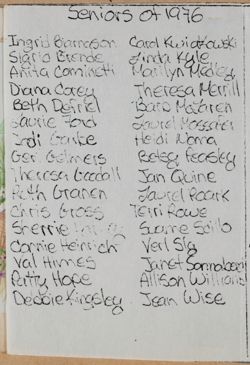 Seniors of 1976
Ingrid Bjarnason
Sigrid Brende
Anita Cominetti
Diana Carey
Beth
Laurie Ford
Jodi
Geri Gelmers
Theresa Goodall
Ruth Granen
Chris Gross
Sherrie
Connie Heinrich
Val Himes
Patty Hope
Debbie Kingsley
Carol Kwiatkowski
Linda Kyle
Marilyn Medley
Theresa Merrill
Barb McLaren
Laurel
Heidi Nonna
Betsy Peasley
Jan Quine
Laurel Roark
Terri Rowe
Sue
Verl Sig
Janet Sonnabend
Allison Williams
Jean Wise